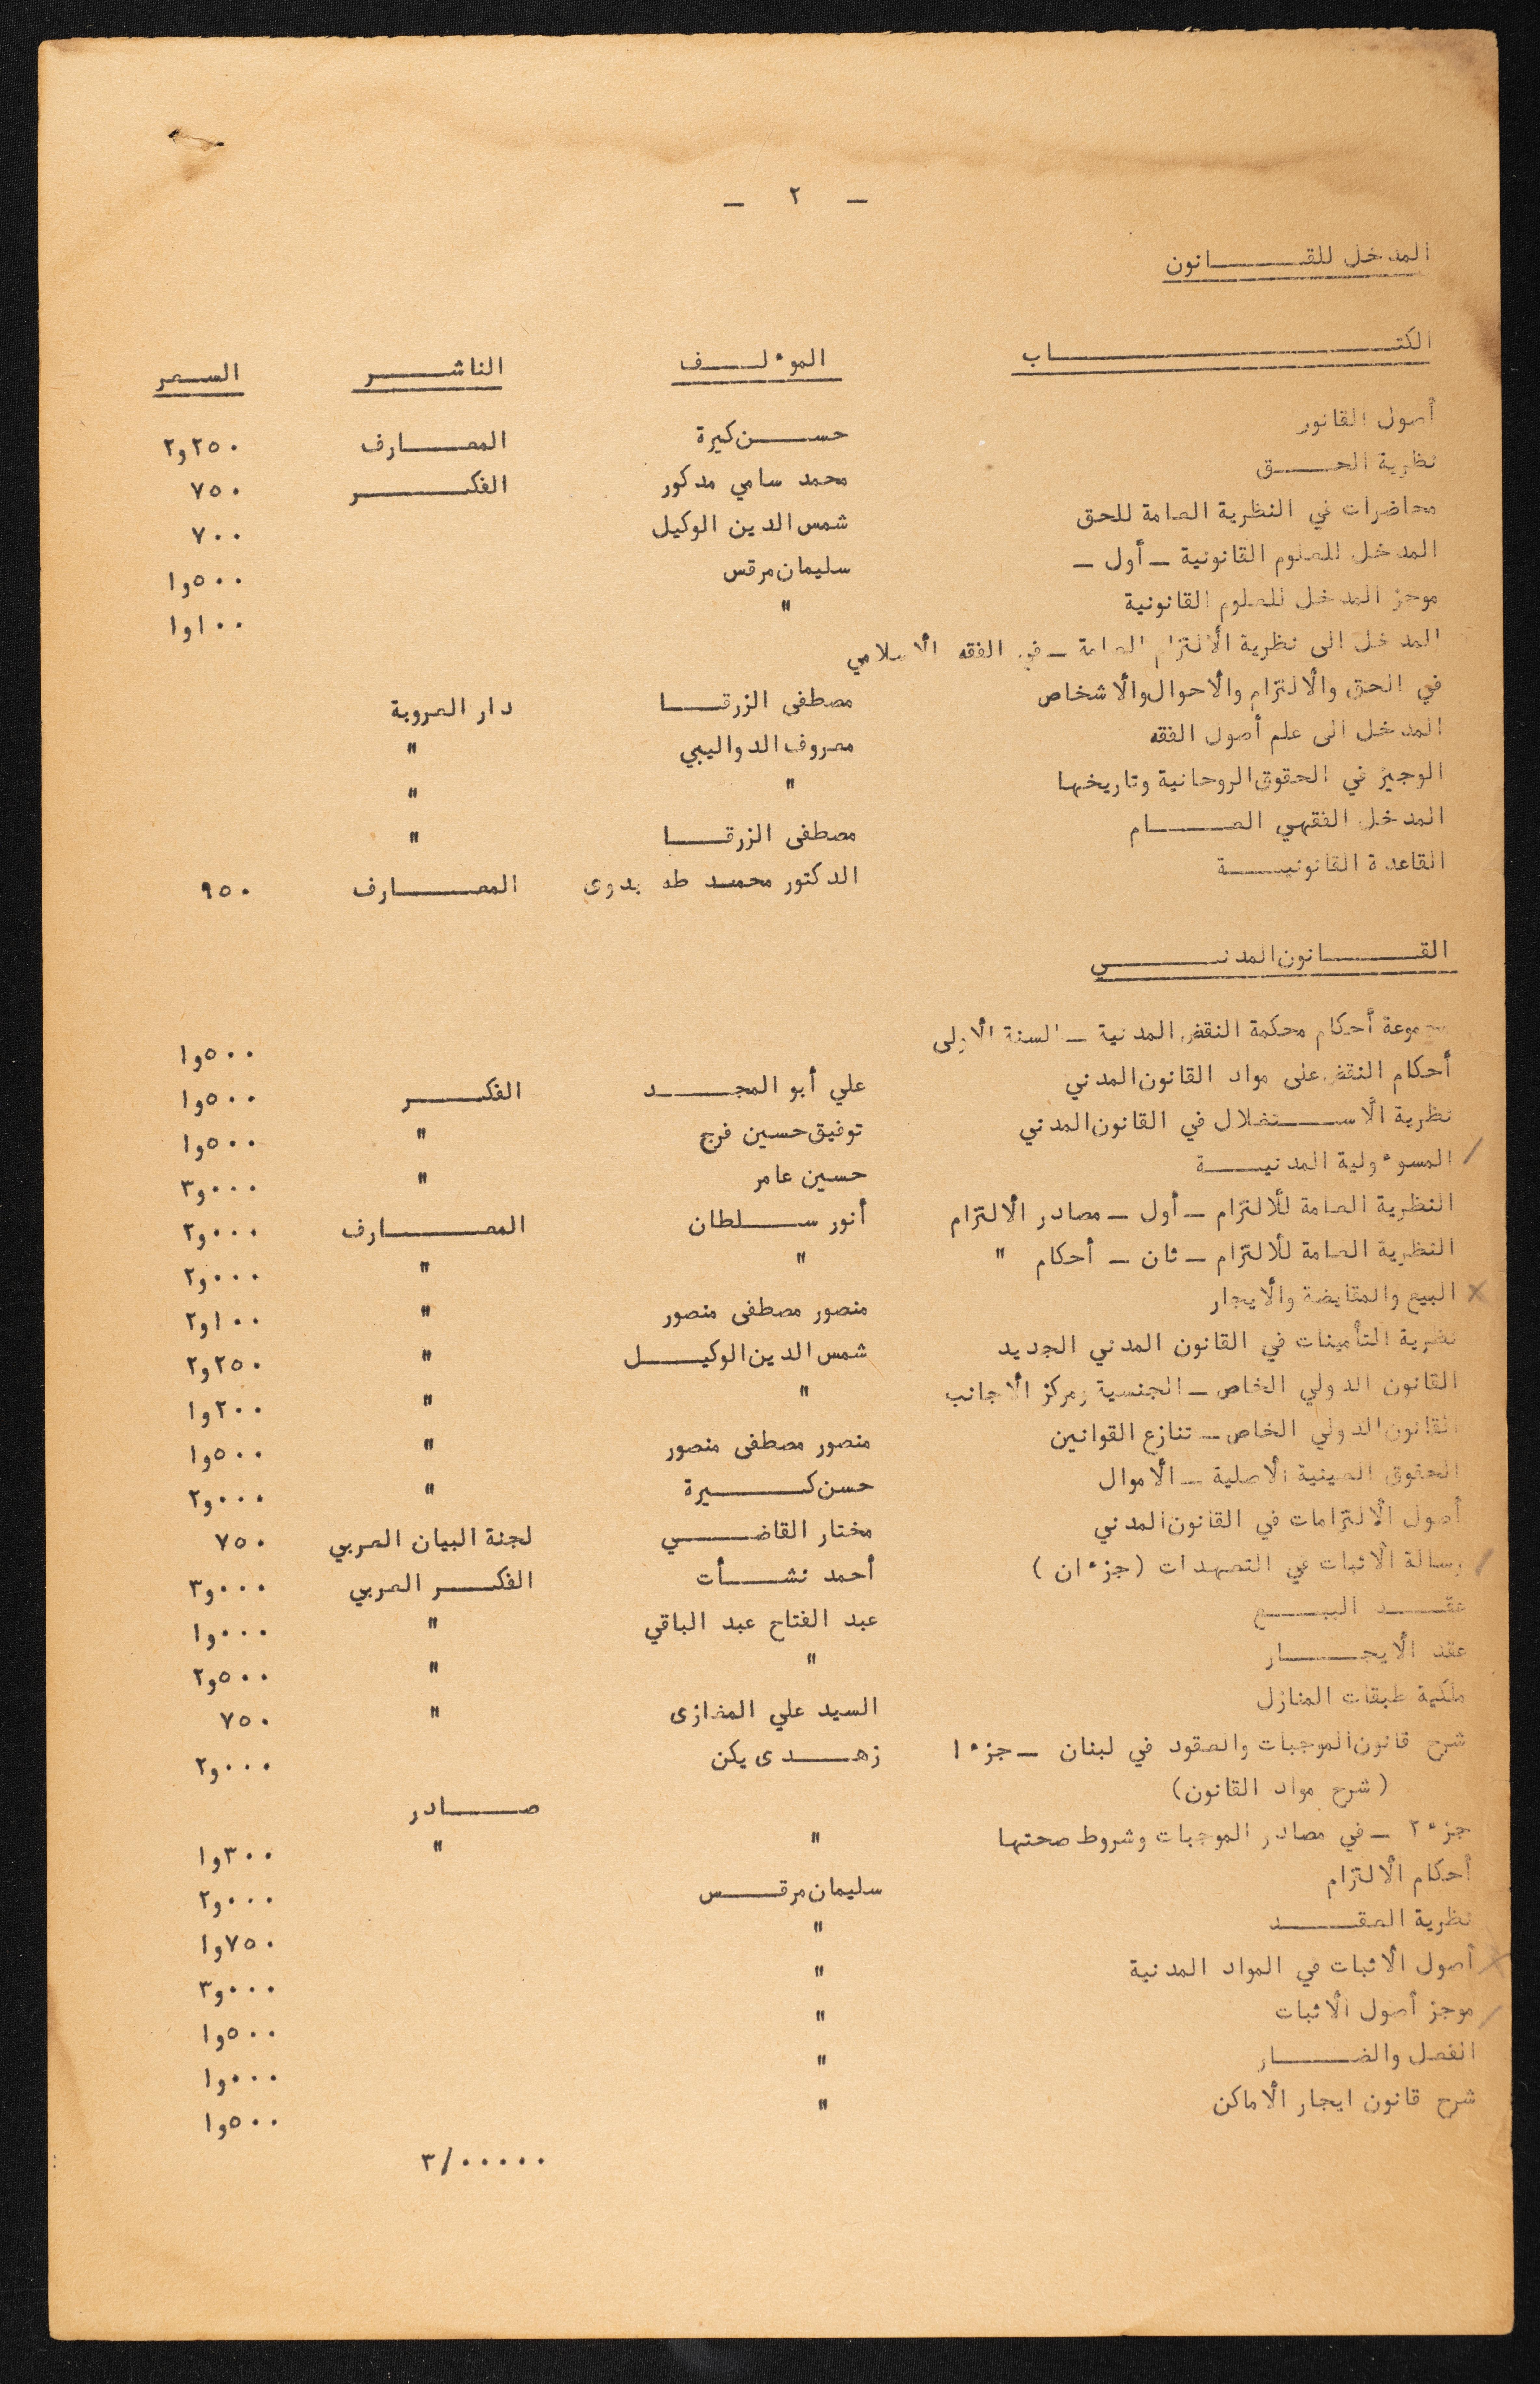 – ٢ –
المدخل للقانون
الكتاب الموٴلف الناشر السعر
أصول القانون حسن كيرة المعارف ٢٥٠و٢
نظرية الحق محمد سامي مدكور الفكر ٧٥٠
محاضرات في النظرية العامة للحق شمس الدين الوكيل ٧٠٠
المدخل للعلوم القانونية – أول – سليمان مرقس ٥٠٠و١
موجز المدخل للعلوم القانونية " ١٠٠و١
المدخل الى نظرية الألتزام العامة – في الفقه الأسلامي
في الحق والألتزام والأحوال والأشخاص مصطفى الزرقا دار العروبة
المدخل الى علم أصول الفقه معروف الدواليبي "
الوجيز في الحقوق الروحانية وتاريخها " "
المدخل الفقهي العام مصطفى الزرقا "
القاعدة القانونية الدكتور محمد طه بدوى المعارف ٩٥٠
القانون المدني
مجموعة أحكام محكمة النقض المدنية – السنة الأولى ٥٠٠و١
أحكام النقض على مواد القانون المدني علي أبو المجد الفكر ٥٠٠و١
نظرية الأستغلال في القانون المدني توفيق حسين فرج " ٥٠٠و١
المسوٴولية المدنية حسين عامر " ٠٠٠و٣
النظرية العامة للألتزام – أول – مصادر الألتزام أنور سلطان المعارف ٠٠٠و٢
النظرية العامة للألتزام – ثان – أحكام " " " ٠٠٠و٢
البيع والمقايضة والأيجار منصور مصطفى منصور " ١٠٠و٢
نظرية التأمينات في القانون المدني الجديد شمس الدين الوكيل " ٢٥٠و٢
القانون الدولي الخاص – الجنسية ومركز الأجانب " " ٢٠٠و١
القانون الدولي الخاص – تنازع القوانين منصور مصطفى منصور " ٥٠٠و١
الحقوق العينية الأصلية – الأموال حسن كيرة " ٠٠٠و٢
أصول الألتزامات في القانون المدني مختار القاضي لجنة البيان العربي ٧٥٠
رسالة الأثبات في التعهدات (جزءان) أحمد نشأت الفكر العربي ٠٠٠و٣
عقد البيع عبد الفتاح عبد الباقي " ٠٠٠و١
عقد الأيجار " " ٥٠٠و٢
ملكية طبقات المنازل السيد علي المغازى " ٧٥٠
شرح قانون الموجبات والعقود في لبنان – جزء ١ زهدى يكن ٠٠٠و٢
(شرح مواد القانون) صادر
جزء ٢ – في مصادر الموجبات وشروط صحتها " " ٣٠٠و١
أحكام الألتزام سليمان مرقس ٠٠٠و٢
نظرية العقد " ٧٥٠و١
أصول الأثبات في المواد المدنية " ٠٠٠و٣
موجز أصول الأثبات " ٥٠٠و١
الفعل والضار " ٠٠٠و١
شرح قانون ايجار الأماكن " ٥٠٠و١
٣/٠٠٠٠٠